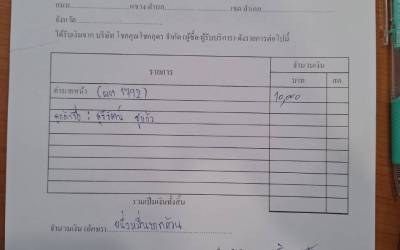 ถนน ............ แขวง/ตำบล ............ เขต/อำเภอ ............
จังหวัด ............
ได้รับเงินจาก บริษัท โชคคูณโชคอุดร จำกัด (ผู้ซื้อ/ผู้รับบริการ) ดังรายการต่อไปนี้
รายการ จำนวนเงิน
บาท สต.
ค่านายหน้า ( 8792) 10,000
ลูกค้าชื่อ :
รวมเป็นเงินทั้งสิ้น
จำนวนเงิน (อักษร) หนึ่งหมื่นบาทถ้วน